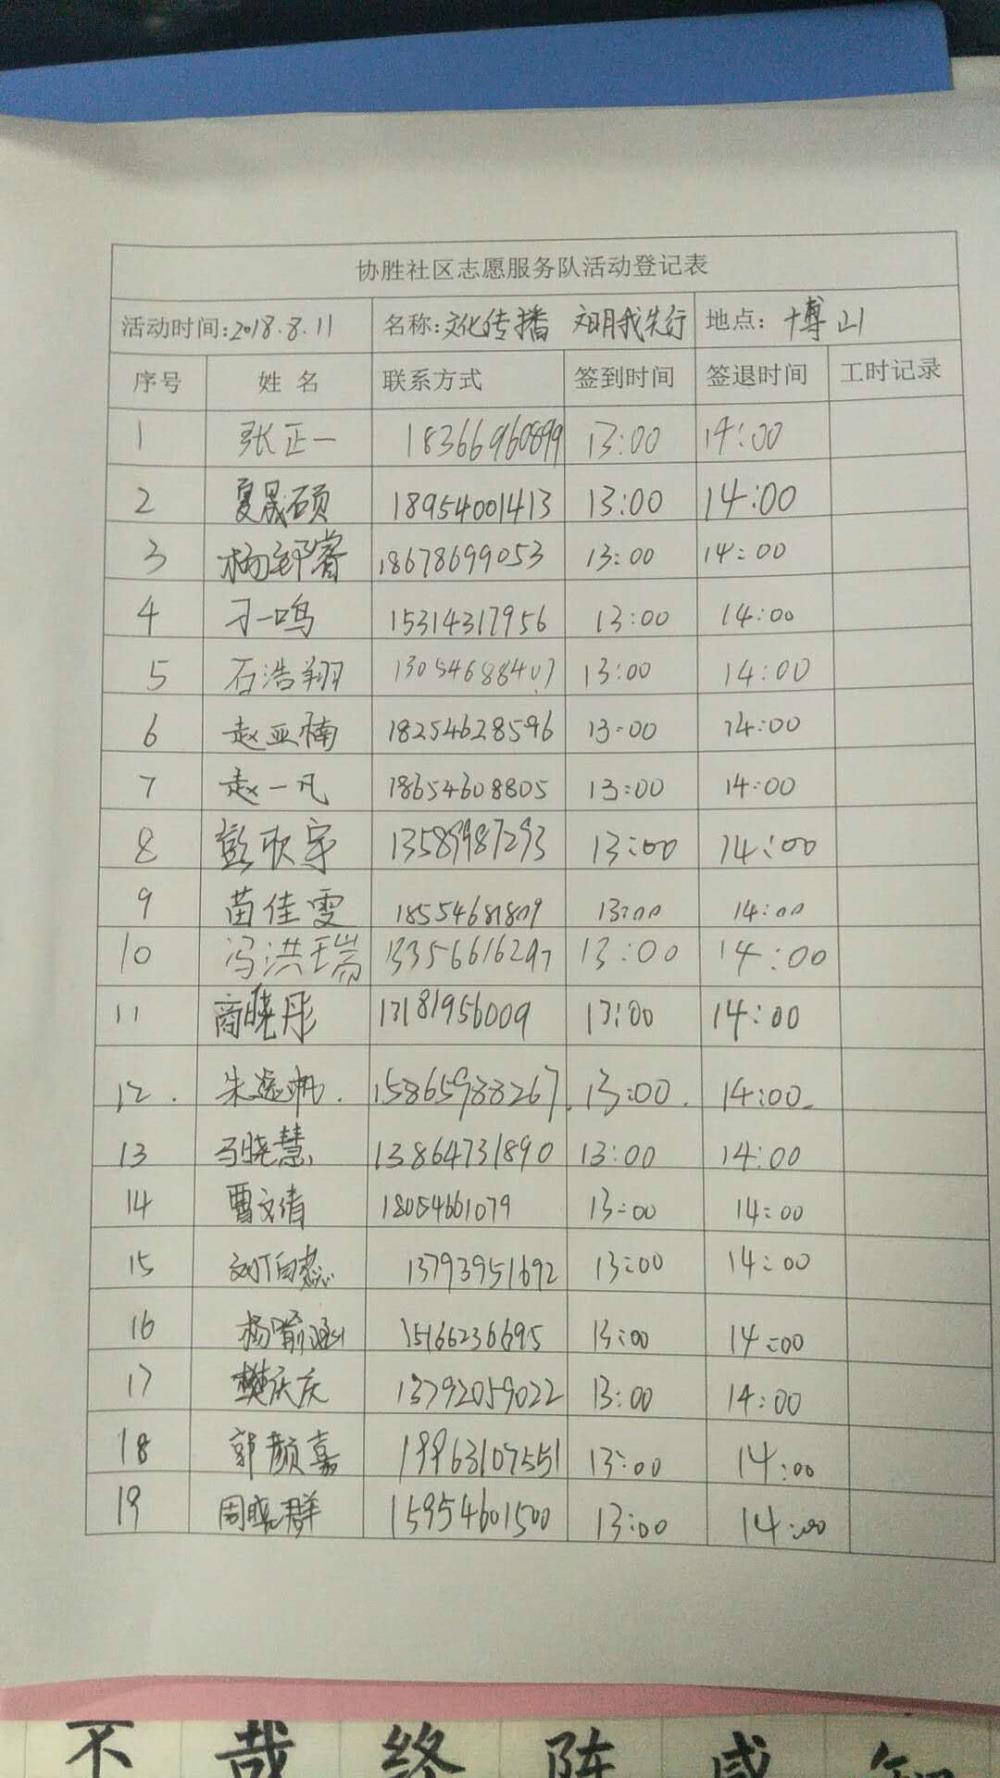 协胜社区志愿服务队活动登记表
活动时间:2018.8.11 名称:文化传播 文明我先行 地点: 博山
序号 姓名 联系方式 签到时间 签退时间 工时记录
1 张正一 18366960899 13:00 14:00
2 夏晟硕 18954001413 13:00 14:00
3 杨 睿 18678699053 13:00 14:00
4 刁一鸣 15314317956 13:00 14:00
5 石浩翔 13054688407 13:00 14:00
6 赵亚楠 18254628596 13:00 14:00
7 赵一凡 18654608805 13:00 14:00
8 彭欣宇 13589987293 13:00 14:00
9 苗佳雯 18554681809 13:00 14:00
10 冯洪瑞 13356616297 13:00 14:00
11 商晓彤 13181956009 13:00 14:00
12. 朱 帆. 15865988267. 13:00. 14:00.
13 马晓慧 13864731890 13:00 14:00
14 曹文倩 18054601079 13:00 14:00
15 刘 13793951692 13:00 14:00
16 杨喻涵 15166236695 13:00 14:00
17 樊庆庆 13792059022 13:00 14:00
18 郭颜嘉 19963107551 13:00 14:00
19 周晓群 15954601500 13:00 14:00
不 哉 终 阵 感